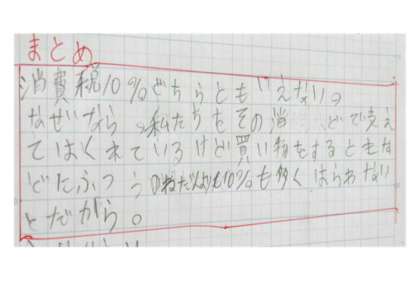 まとめ
消費税10%どちらともいえない。
なぜなら、私たちもその消 どで支え
てはくれているけど買い物もするともな
どにふつうのねだんよりも10%も多くはらわない
とだから。